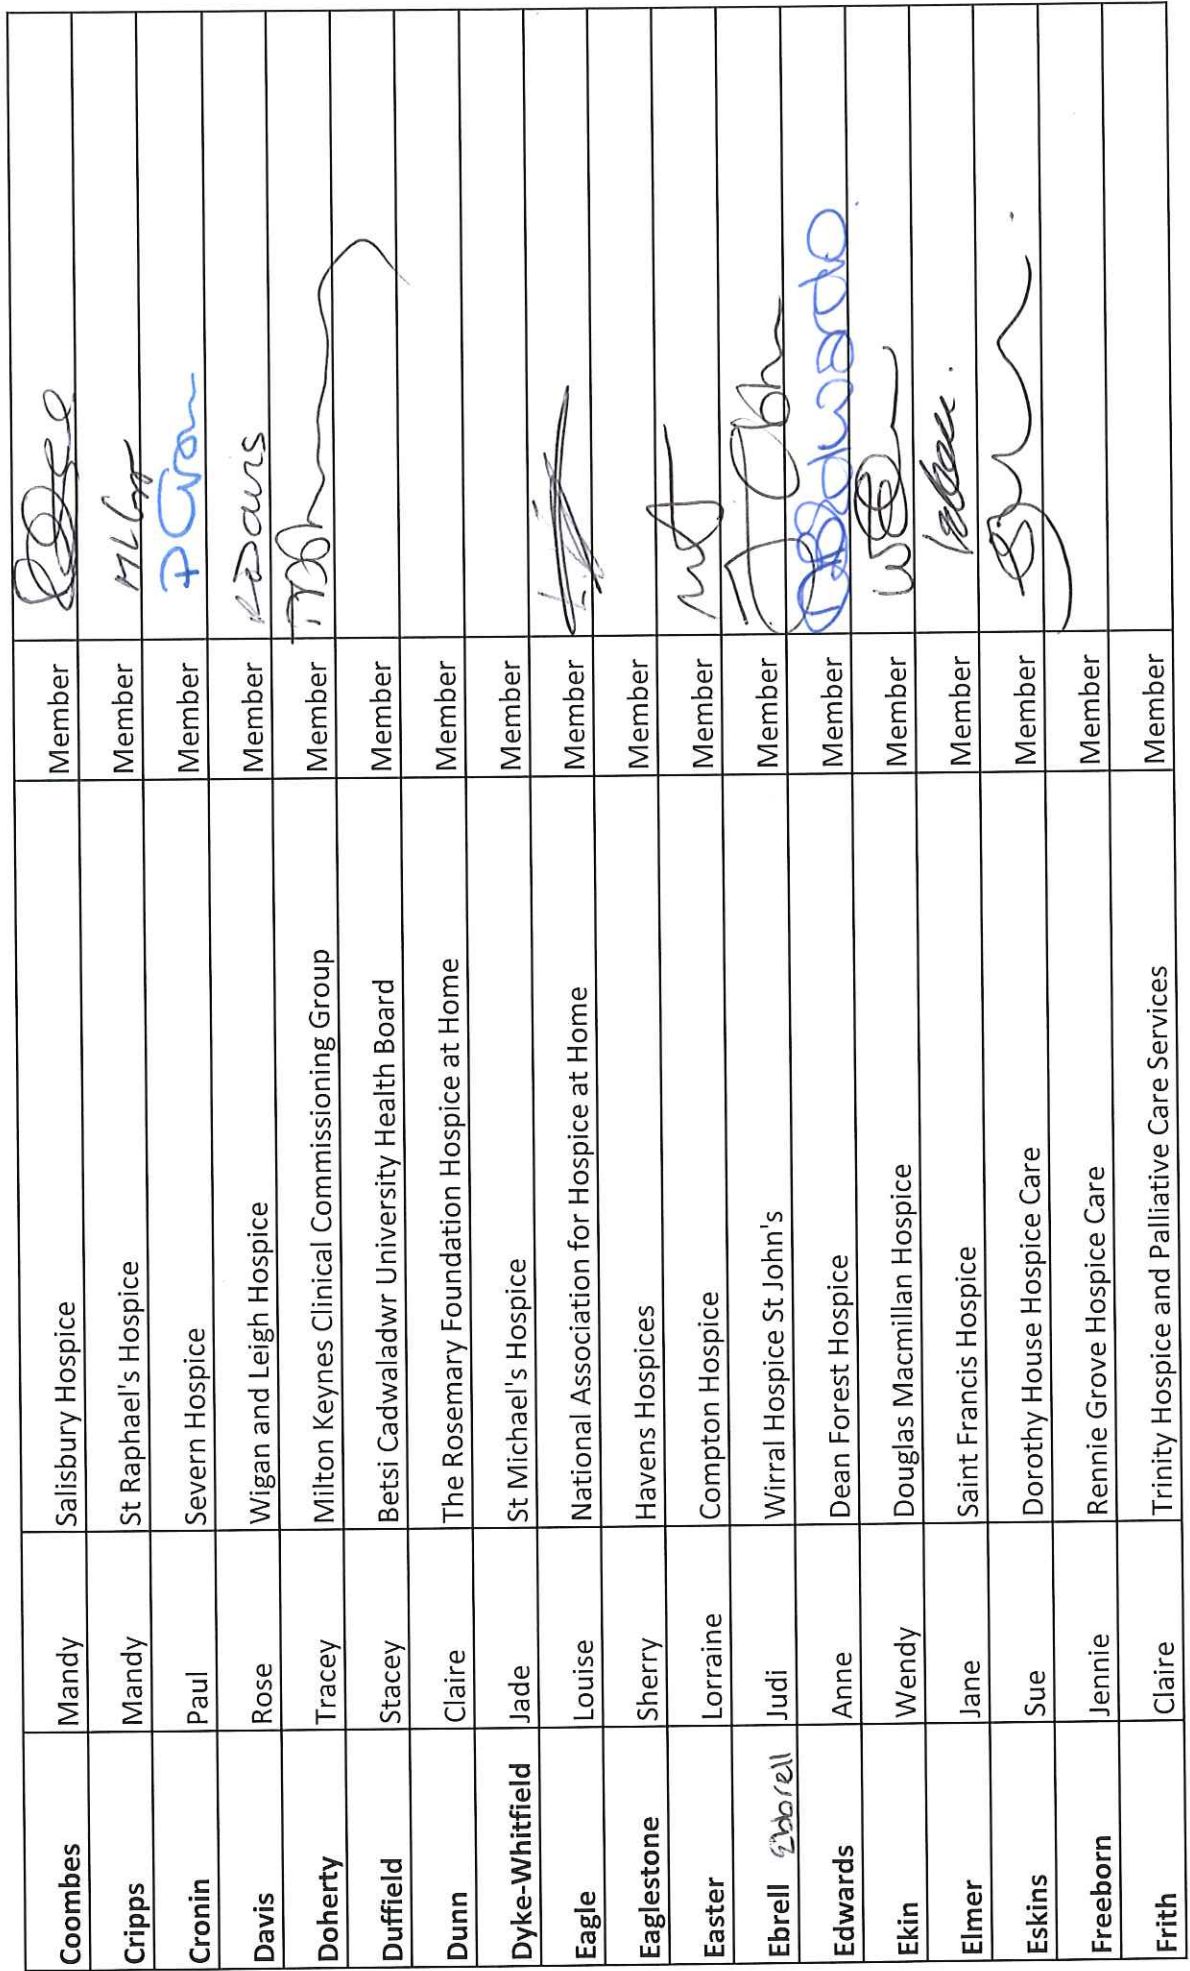 Coombes Mandy Salisbury Hospice Member
Cripps Mandy St Raphael's Hospice Member
Cronin Paul Severn Hospice Member
Davis Rose Wigan and Leigh Hospice Member
Doherty Tracey Milton Keynes Clinical Commissioning Group Member
Duffield Stacey Betsi Cadwaladwr University Health Board Member
Dunn Claire The Rosemary Foundation Hospice at Home Member
Dyke-Whitfield Jade St Michael's Hospice Member
Eagle Louise National Association for Hospice at Home Member
Eaglestone Sherry Havens Hospices Member
Easter Lorraine Compton Hospice Member
Ebrell Ebbrell Judi Wirral Hospice St John's Member
Edwards Anne Dean Forest Hospice Member
Ekin Wendy Douglas Macmillan Hospice Member
Elmer Jane Saint Francis Hospice Member
Eskins Sue Dorothy House Hospice Care Member
Freeborn Jennie Rennie Grove Hospice Care Member
Frith Claire Trinity Hospice and Palliative Care Services Member